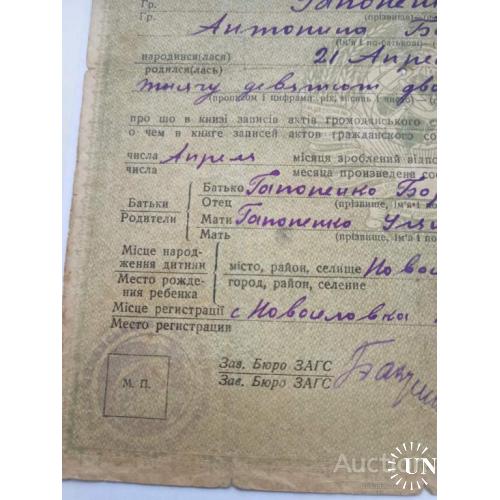 Гр.
Гр. Гапоненк
(прізвище—
Антонина Б
(ім'я і по-батькові—
народився(лася) 21 Апрел
родился(лась)
тысячу девятсот два
(прописом і цифрами рік, місяць і число)
про що в книзі записів актів громадянського
о чем в книге записей актов гражданского со
числа Апреля місяця зроблений відпо
числа месяца произведена соо
Батько Гапоненко Бор
Батьки Отец (прізвище, ім'я і по
Родители Мати Гапоненко
Мать (прізвище, ім'я і по
Місце народ-
ження дитини місто, район, селище Ново
Место рожде- город, район, селение
ния ребенка
Місце регистрації с Новоселовка
Место регистрации
Зав. Бюро ЗАГС
М. П. Зав. Бюро ЗАГС
Auction
UN